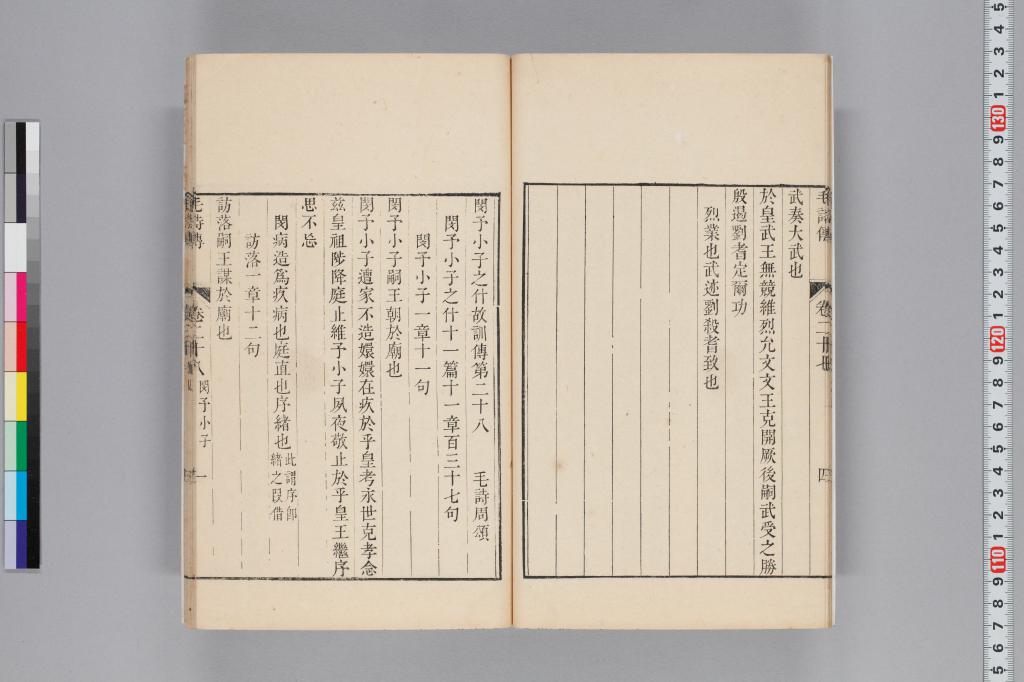 毛詩傳 卷二十七 四
武奏大武也
於皇武王無競維烈允文文王克開厥後嗣武受之勝
殷遏劉耆定爾功
烈業也武迹劉殺耆致也
閔予小子之什故訓傳第二十八 毛詩周頌
閔予小子之什十一篇十一章百三十七句
閔予小子一章十一句
閔予小子嗣王朝於廟也
閔予小子遭家不造嬛嬛在疚於乎皇考永世克孝念
兹皇祖陟降庭止維予小子夙夜敬止於乎皇王繼序
思不忘
閔病造爲疚病也庭直也序緒也此謂序卽緒之叚借
訪落一章十二句
訪落嗣王謀於廟也
毛詩傳 卷二十八 閔予小子 一
130
120
110